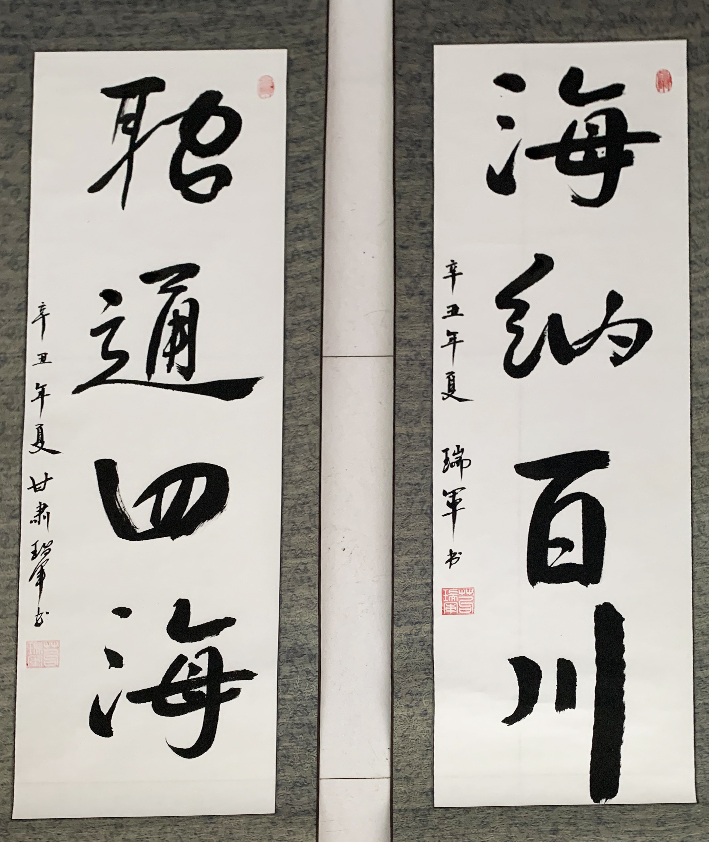 海纳百川
辛丑年夏 瑞軍书
通四海
辛丑年夏甘肃瑞軍书